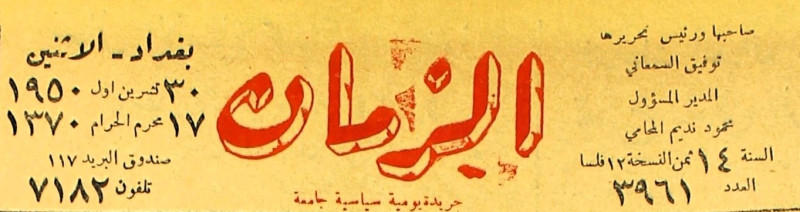 صاحبها ورئيس تحريرها
توفيق السمعاني
المدير المسؤول
محمود نديم المحامي
السنة ١٤ ثمن النسخة ١٢ فلسا
العدد ٣٩٦١
الزمان
جريدة يومية سياسية جامعة
بغداد - الاثنين
٣٠ تشرين اول ١٩٥٠
١٧ محرم الحرام ١٣٧٠
صندوق البريد ١١٧
تلفون ٧١٨٢